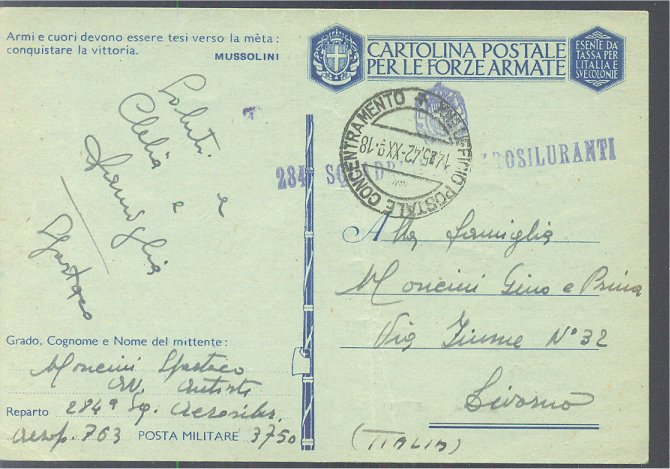 Armi e cuori devono essere tesi verso la mèta:
conquistare la vittoria.
MUSSOLINI
CARTOLINA POSTALE
PER LE FORZE ARMATE
ESENTE DA
TASSA PER
L'ITALIA E
SVE COLONIE
Saluti a
Clelia e
famiglia
Spartaco
UFFICIO POSTALE CONCENTRAMENTO
5.42-XX
-18
284ª SQUADR
ROSILURANTI
Alla famiglia
Moncini Gino e Prima
Via Fiume N° 32
Livorno
(ITALIA)
Grado, Cognome e Nome del mittente:
Moncini Spartaco
AV. Autista
Reparto 284ª Sq. Aerosilur.
Aerop. 763 POSTA MILITARE 3750